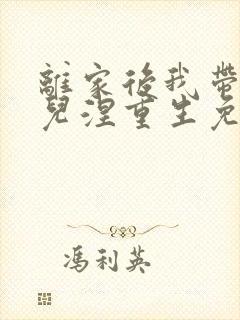 離家後我帶
兒涅重生免
馮利英